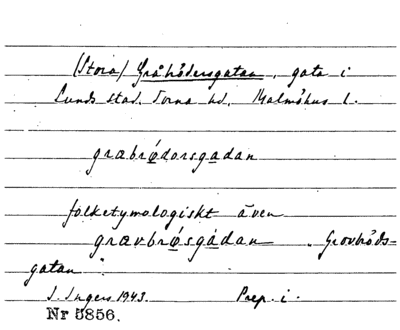 (Stora) Gråbrödersgatan, gata i
Lunds stad. Torna hd. Malmöhus l.
grabrødorsgadan
folketymologiskt även
grævbrøsgadan "Grovbröds-
gatan".
I. Ingers 1943. Prep. i.
Nr 5856.